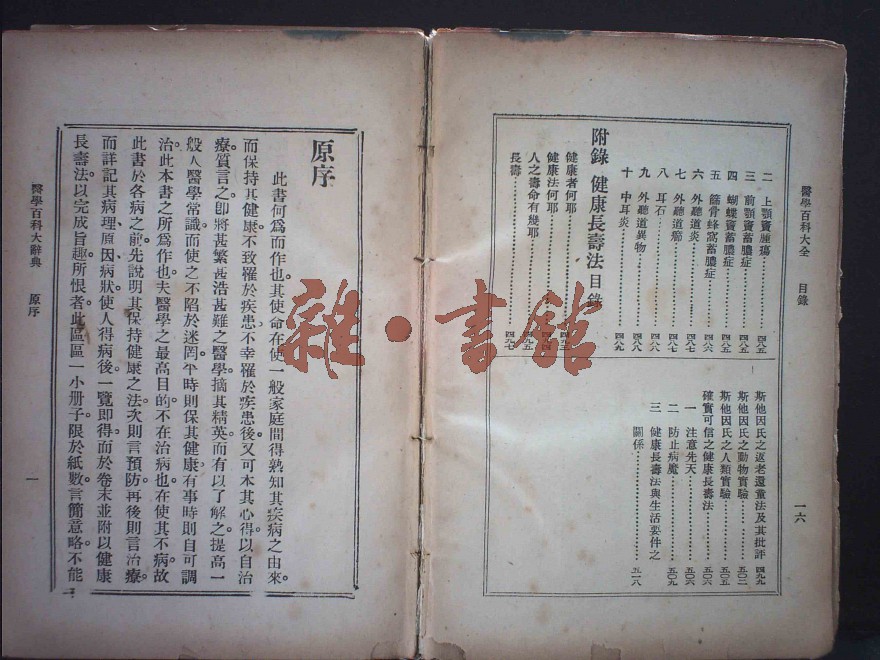 醫學百科大全 目錄
一六
二 上顎竇腫瘍 四八五
三 前額竇蓄膿症 四八五
四 蝴蝶竇蓄膿症 四八五
五 篩骨蜂窩蓄膿症 四八六
六 外聽道炎 四八六
七 外聽道癤 四八七
八 耳石 四八八
九 外聽道異物 四八八
十 中耳炎 四八九
附錄 健康長壽法目錄
健康者何耶
健康法何耶
人之壽命有幾耶
長壽 四九七
斯他因氏之返老還童法及其批評 四九九
斯他因氏之動物實驗 五〇二
斯他因氏之人類實驗 五〇五
確實可信之健康長壽法 五〇六
一 注意先天 五〇六
二 防止病魔 五〇九
三 健康長壽法與生活要件之
關係 五一八
原序
此書何為而作也。其使命在使一般家庭間得熟知其疾病之由來。
而保持其健康。不致罹於疾患。不幸罹於疾患後。又可本其心得以自治
療。質言之。卽將甚繁甚浩甚難之醫學。摘其精英。而有以了解之。提高一
般人醫學常識。而使之不陷於迷罔。平時則保其健康。有事時則自可調
治。此本書之所爲作也。夫醫學之最高目的。不在治病也。在使其不病。故
此書於各病之前。先說明其保持健康之法。次則言預防。再後則言治療。
而詳記其病理、原因、病狀。使人得病後。一覽即得。而於卷末並附以健康
長壽法。以完成旨趣。所恨者。此區區一小册子。限於紙數。言簡意略。不能
醫學百科大辭典 原序
一
雜·書館